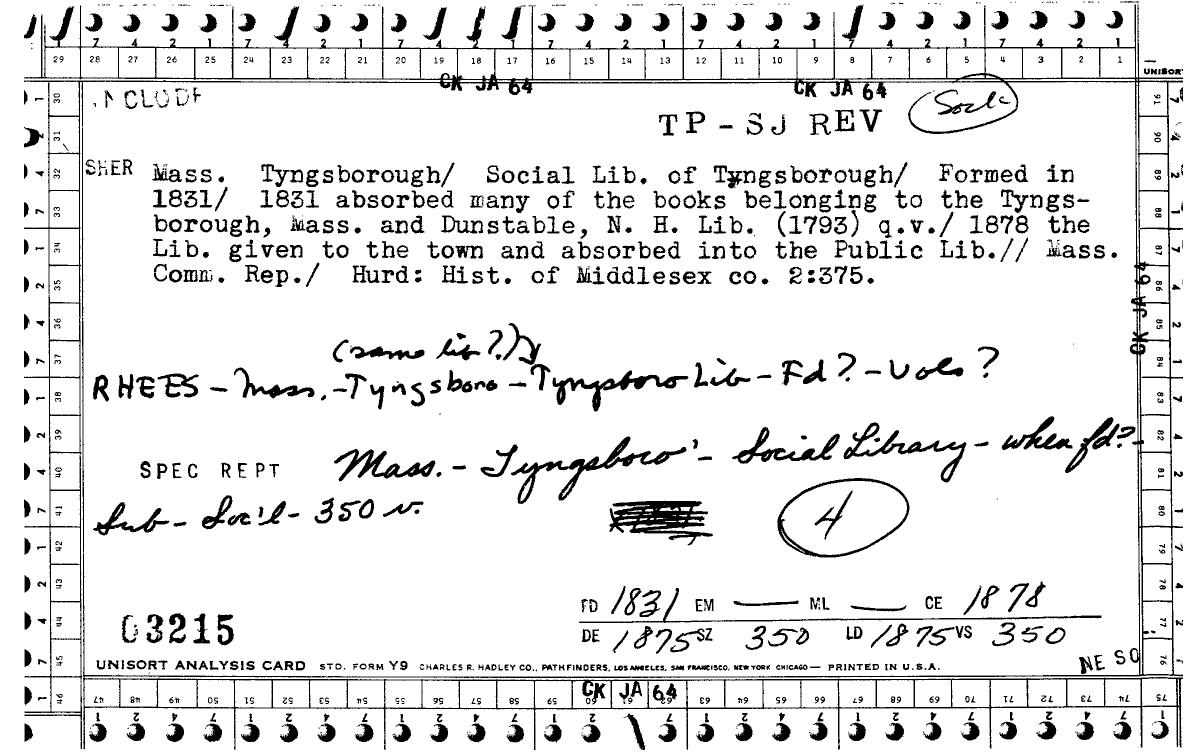 7 4 2 1 7 4 2 1 7 4 2 1 7 4 2 1 7 4 2 1 7 4 2 1 7 4 2 1
29 28 27 26 25 24 23 22 21 20 19 18 17 16 15 14 13 12 11 10 9 8 7 6 5 4 3 2 1
UNISORT
CK JA 64 CK JA 64
INCLUDE
TP-SJ REV Socl
SHER Mass. Tyngsborough/ Social Lib. of Tyngsborough/ Formed in
1831/ 1831 absorbed many of the books belonging to the Tyngs-
borough, Mass. and Dunstable, N. H. Lib. (1793) q.v./ 1878 the
Lib. given to the town and absorbed into the Public Lib.// Mass.
Comm. Rep./ Hurd: Hist. of Middlesex co. 2:375.
CK JA 64
(same lib?)
RHEES - Mass. - Tyngsboro - Tyngsboro Lib - Fd? - Vols?
SPEC REPT Mass. - Tyngsboro' - Social Library - when fd? -
Sub - Soc'l - 350 v.
4
FD 1831 EM — ML — CE 1878
03215
DE 1875 SZ 350 LD 1875 VS 350
UNISORT ANALYSIS CARD STD. FORM Y9 CHARLES R. HADLEY CO., PATHFINDERS, LOS ANGELES, SAN FRANCISCO, NEW YORK CHICAGO — PRINTED IN U.S.A.
NE SO
CK JA 64
30 31 32 33 34 35 36 37 38 39 40 41 42 43 44 45 46
47 48 49 50 51 52 53 54 55 56 57 58 59 60 61 62 63 64 65 66 67 68 69 70 71 72 73 74 75
91 90 89 88 87 86 85 84 83 82 81 80 79 78 77 76